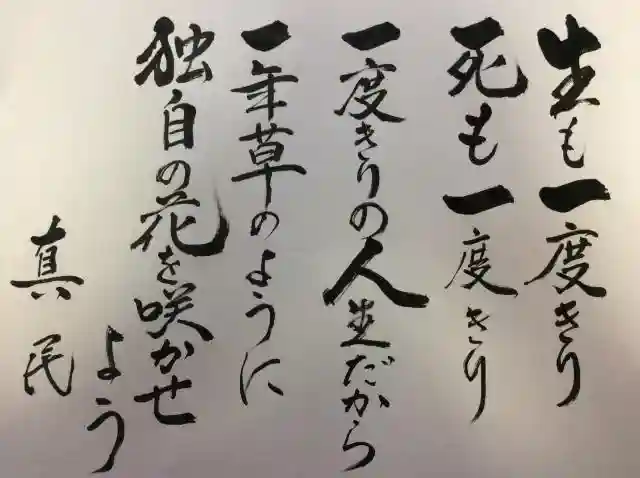 生も一度きり
死も一度きり
一度きりの人生だから
一年草のように
独自の花を咲かせ
よう
真民